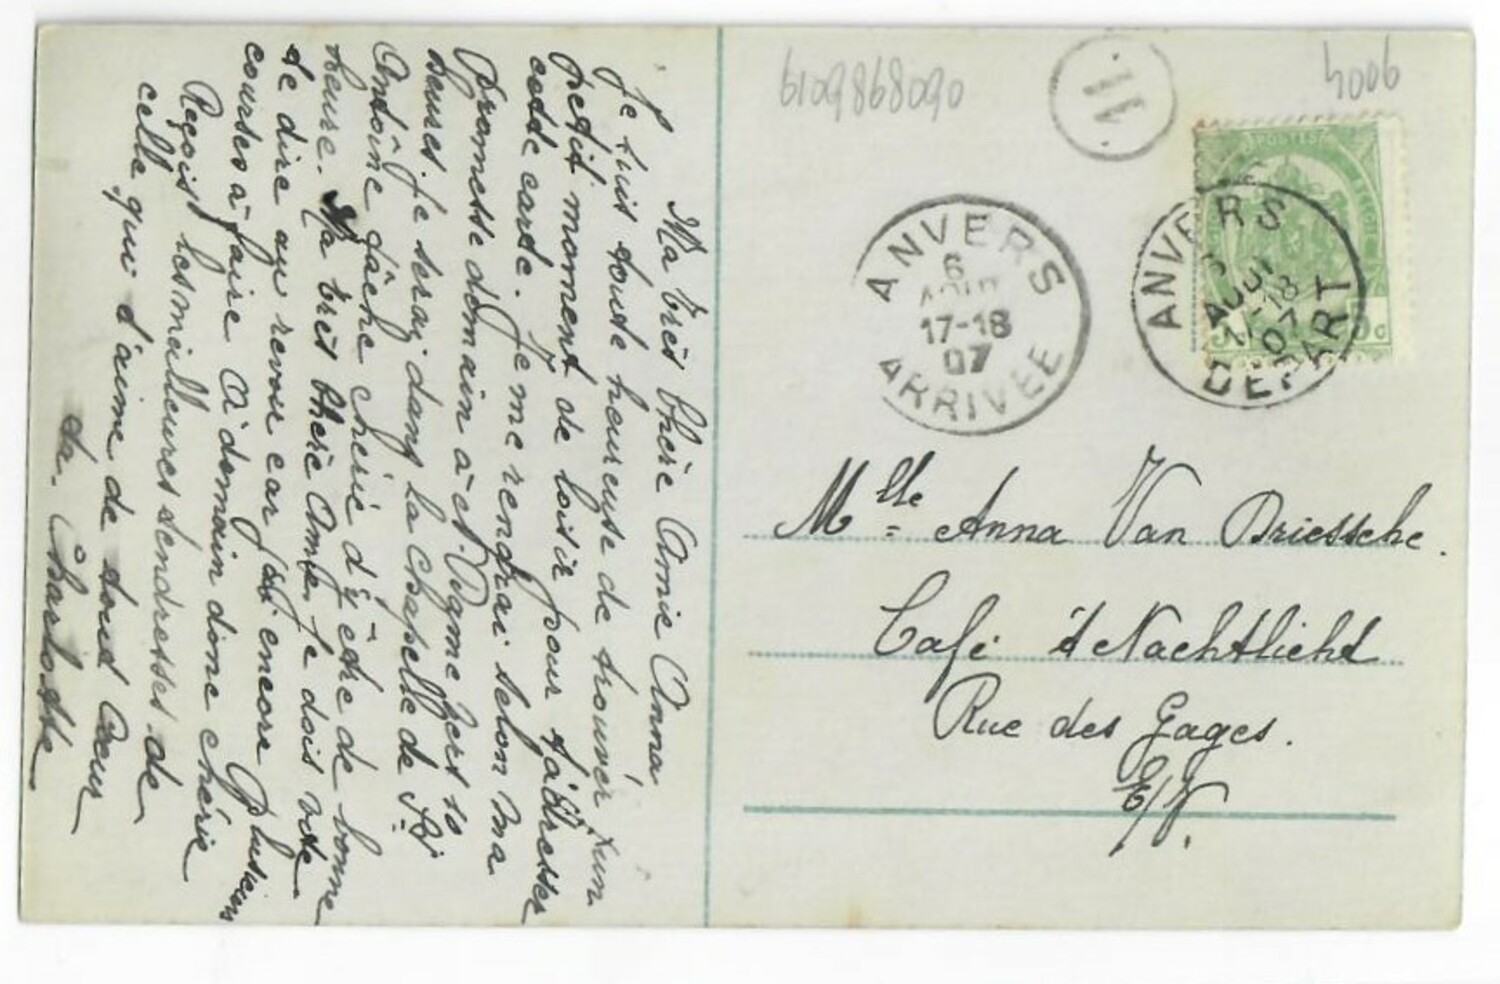 Ma très chère Amie Anna
Je suis toute heureuse de trouver un
petit moment de loisir pour t'adresser
cette carte. Je me rendrai selon ma
promesse demain à N. Dame vers 10
heures. Je serai dans la chapelle de St
Antoine tâche chérie d'y être de bonne
heure. Ma très chère Amie, je dois vite
te dire au revoir car j'ai encore plusieurs
courses à faire. A demain donc chérie
Reçois les meilleures tendresses de
celle qui t'aime de tout cœur
ta. Charlotte
6109868090
11
4006
POSTES
ANVERS
6
AOUT
17-18
07
ARRIVEE
ANVERS
6
AOUT
17-18
07
DEPART
Mlle Anna Van Driessche.
Café 't Nachtlicht
Rue des Gages.
E/V.